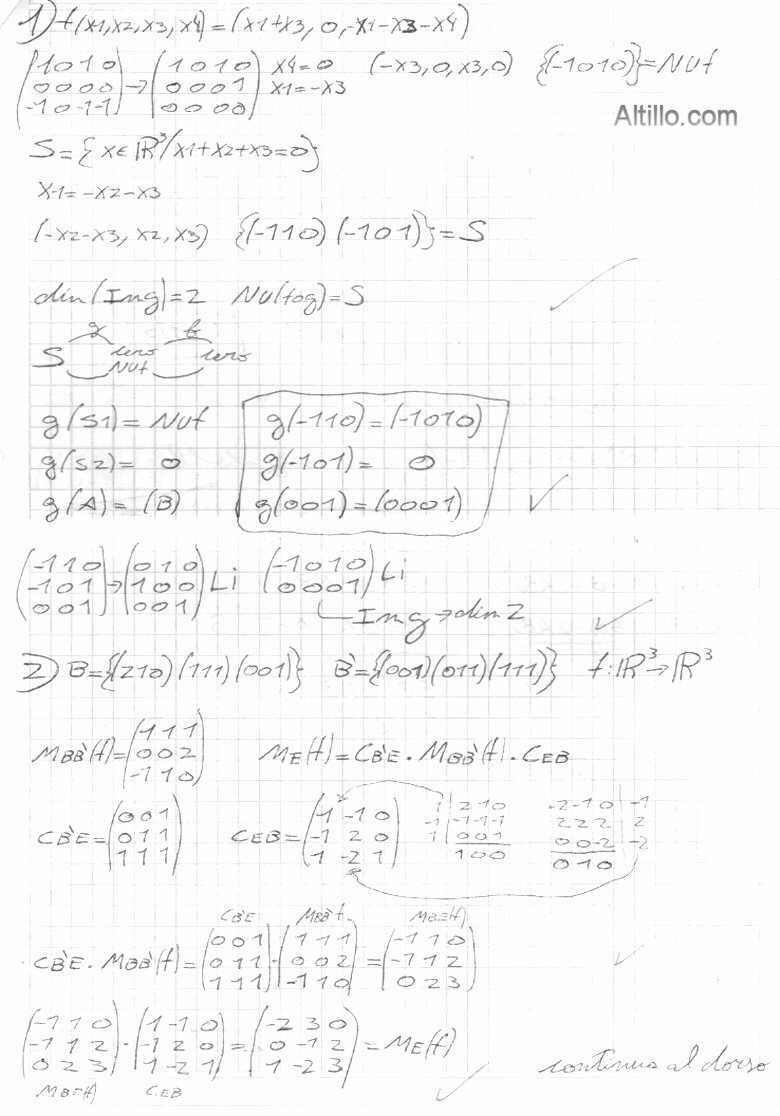 1) f(x1,x2,x3,x4)=(x1+x3, 0, -x1-x3-x4)
(1010 0000 -10-1-1) → (1010 0001 0000) x4=0 x1=-x3 (-x3,0,x3,0) {(-1010)}=Nuf
Altillo.com
S={x∈ℝ³/x1+x2+x3=0}
x1=-x2-x3
(-x2-x3, x2, x3) {(-110) (-101)}=S
dim(Img)=2 Nu(fog)=S
g f
S cero Nuf cero
g(S1)= Nuf g(-110)=(-1010)
g(S2)= 0 g(-101)= 0
g(A)= (B) g(001)=(0001)
(-110 -101 001) → (010 100 001) Li (-1010 0001) Li
Img→dim 2
2) B={(210)(111)(001)} B'={(001)(011)(111)} f:ℝ³→ℝ³
MBB'(f)=(111 002 -110) ME(f)=CB'E . MBB'(f) . CEB
CB'E=(001 011 111) CEB=(1 -1 0 -1 2 0 1 -2 1)
1 | 210 -2-1 0 | -1
-1 | -1-1-1 222 | 2
1 | 001 00-2 | -2
100 010
CB'E MBB'f MBE(f)
CB'E . MBB'(f)=(001 011 111) . (111 002 -110) = (-110 -112 023)
(-110 -112 023) . (1 -1 0 -1 2 0 1 -2 1) = (-2 3 0 0 -1 2 1 -2 3) = ME(f)
MBE(f) CEB
continua al dorso